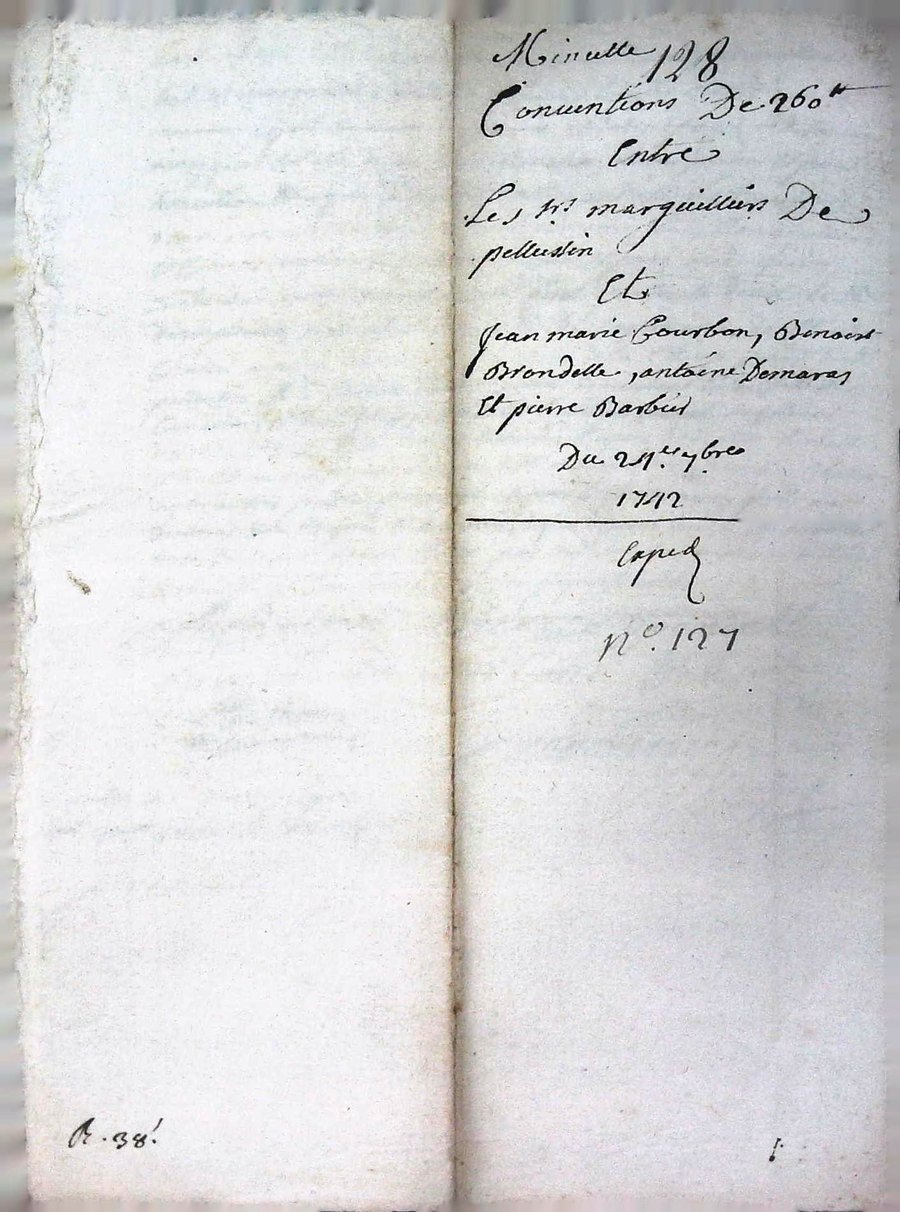 Minutte 128
Conventions De 260tt
Entre
Les srs marguilliers De
pellussin
Et
Jean marie Courbon, Benoist
Brondelle, antoine Demaras
Et pierre Barbier
Du 7bre
1742
Exped
N° 127
R. 38